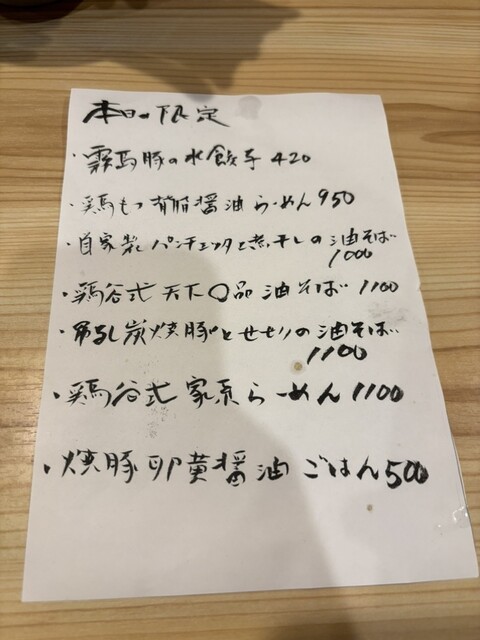 本日の限定
・霧島豚の水餃子 420
・鶏もつ背脂醤油らーめん 950
・自家製パンチェッタと煮干しの油そば
1000
・鶏谷式天下〇品油そば 1100
・吊るし炭焼豚とせせりの油そば
1100
・鶏谷式家系らーめん 1100
・焼豚卵黄醤油ごはん 500